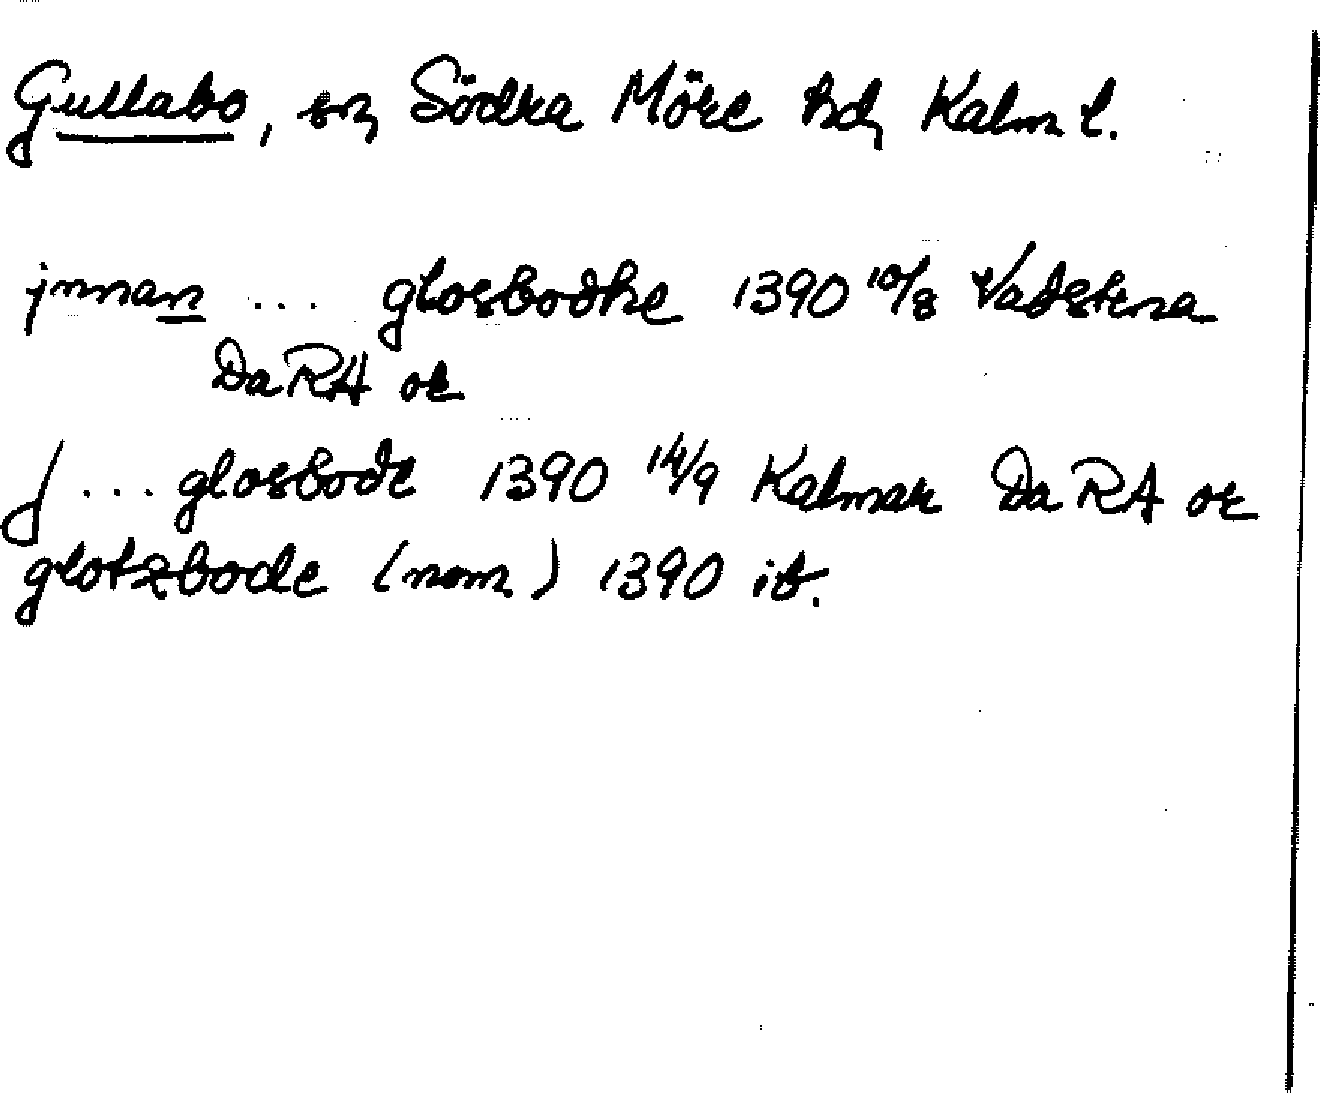 Gullabo, sn, Södra Möre hd, Kalm l.
jnnan ... glosbodhe 1390 10/8 Vadstena
DaRA or
j ... glosbode 1390 14/9 Kalmar DaRA or
glotzbode (nom) 1390 ib.